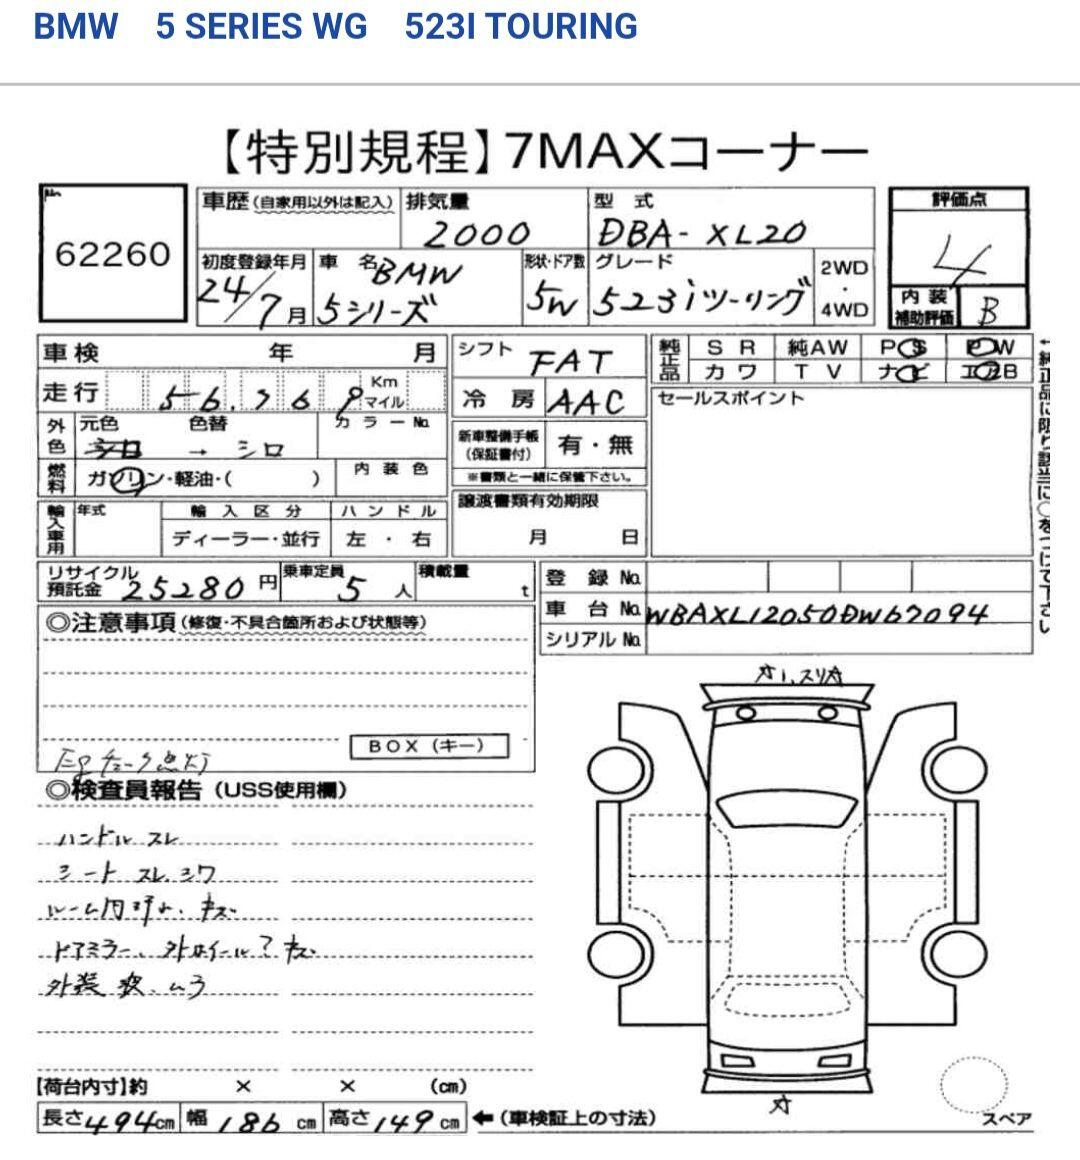 BMW 5 SERIES WG 523I TOURING
【特別規程】7MAXコーナー
62260
車歴(自家用以外は記入) 排気量 型式 評価点
2000 DBA-XL20 4
初度登録年月 車名 形状・ドア数 グレード 2WD・4WD
24/7月 BMW 5シリーズ 5W 523iツーリング
内装補助評価 B
車検 年 月 シフト FAT 純正品 SR 純AW PS PW
カワ TV ナビ エアB
走行 56,769 Km マイル 冷房 AAC
セールスポイント
外色 元色 色替 カラーNo.
→ シロ
新車整備手帳(保証書付) 有・無
※書類と一緒に保管下さい。
燃料 ガソリン・軽油・( ) 内装色
譲渡書類有効期限 月 日
輸入車用 年式 輸入区分 ハンドル
ディーラー・並行 左・右
←純正品に限り該当に○をつけて下さい
リサイクル預託金 25280円 乗車定員 5人 積載量 t
登録No.
車台No. WBAXL12050DW67094
シリアルNo.
◎注意事項(修復・不具合箇所および状態等)
BOX(キー)
チェック点灯
◎検査員報告(USS使用欄)
ハンドル スレ
シート スレ、シワ
ルーム内 キズ
ドアミラー、 キズ
外装
【荷台内寸】約 × × (cm)
長さ494cm 幅186cm 高さ149cm ←(車検証上の寸法)
スペア